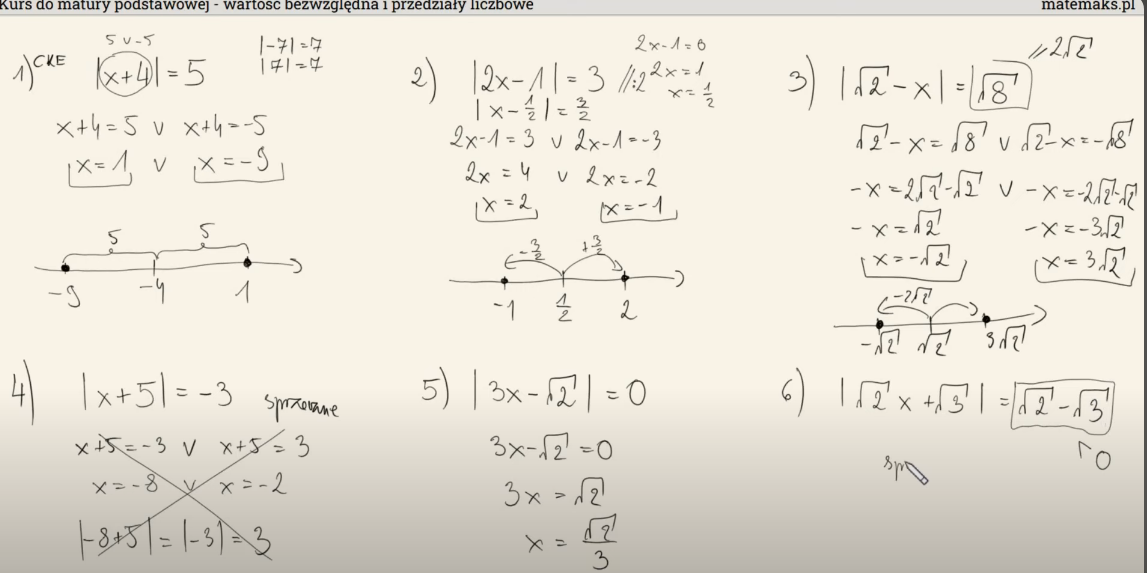 Kurs do matury podstawowej - wartość bezwzględna i przedziały liczbowe
matemaks.pl
1) CKE
5 ∨ -5
|x+4| = 5
|-7| = 7
|7| = 7
x+4=5 ∨ x+4=-5
x=1 ∨ x=-9
5 5
-9 -4 1
2) |2x-1| = 3 //:2
2x-1=0
2x=1
x=1/2
|x-1/2| = 3/2
2x-1=3 ∨ 2x-1=-3
2x=4 ∨ 2x=-2
x=2 x=-1
-3/2 +3/2
-1 1/2 2
3) |√2-x| = √8
//2√2
√2-x=√8 ∨ √2-x=-√8
-x=2√2-√2 ∨ -x=-2√2-√2
-x=√2 -x=-3√2
x=-√2 x=3√2
-2√2
-√2 √2 3√2
4) |x+5| = -3
sprzeczne
x+5=-3 ∨ x+5=3
x=-8 ∨ x=-2
|-8+5| = |-3| = 3
5) |3x-√2| = 0
3x-√2=0
3x=√2
x=√2/3
6) |√2x+√3| = √2-√3
0
sp